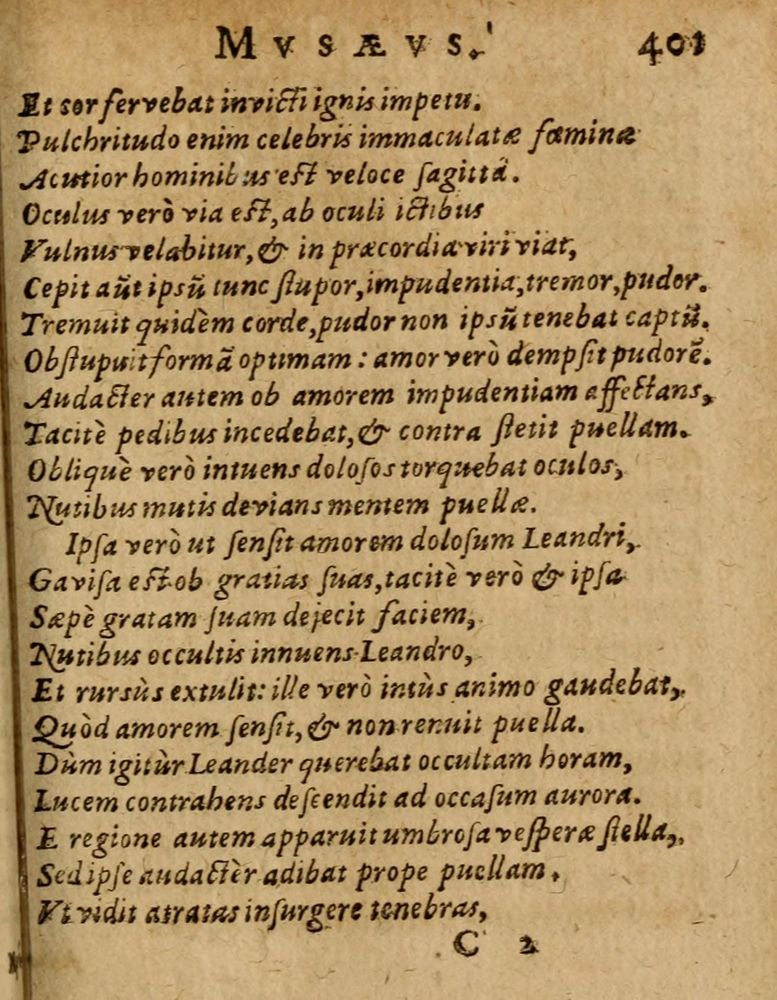 MVSÆVS. 401
Et cor fervebat invicti ignis impetu.
Pulchritudo enim celebris immaculatæ fœminæ
Acutior hominibus est veloce sagittâ.
Oculus verò via est, ab oculi ictibus
Vulnus velabitur, & in præcordia viri viat,
Cepit aūt ipsū tunc stupor, impudentia, tremor, pudor.
Tremuit quidèm corde, pudor non ipsū tenebat captū.
Obstupuit formā optimam: amor verò dempsit pudorē.
Audacter autem ob amorem impudentiam affectans,
Tacitè pedibus incedebat, & contra stetit puellam.
Obliquè verò intuens dolosos torquebat oculos,
Nutibus mutis devians mentem puellæ.
Ipsa verò ut sensit amorem dolosum Leandri,
Gavisa est ob gratias suas, tacitè verò & ipsa
Sæpè gratam suam dejecit faciem,
Nutibus occultis innuens Leandro,
Et rursùs extulit: ille verò intùs animo gaudebat,
Quòd amorem sensit, & non renuit puella.
Dùm igitùr Leander querebat occultam horam,
Lucem contrahens descendit ad occasum aurora.
E regione autem apparuit umbrosa vesperæ stella,
Sed ipse audactèr adibat prope puellam.
Vt vidit atratas insurgere tenebras,
C 2